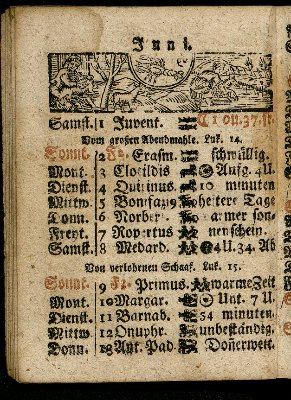 Juni.
Samst. 1 Juvent. C 1 ou. 37. st.
Vom großen Abendmahle. Luk. 14.
Sonnt. 2 F2. Erasm. schwüllig.
Mont. 3 Clotildis Aufg. 4 U.
Dienst. 4 Quirinus 10 minuten
Mittw. 5 Bonifaz 9 heitere Tage
Donn. 6 Norber. warmer son-
Freyt. 7 Ropertus nenschein.
Samst. 8 Medard. 4 U. 34. Ab
Von verlohrnen Schaaf. Luk. 15.
Sonnt. 9 F3. Primus. warme Zeit
Mont. 10 Margar. Unt. 7 U.
Dienst. 11 Barnab. 54 minuten.
Mittw. 12 Onuphr. unbeständig.
Donn. 13 Ant. Pad. Doñerwett.